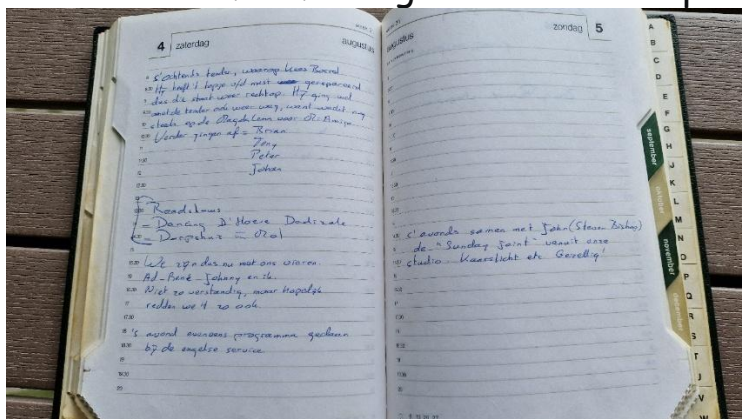 4 zaterdag augustus
s'ochtends tender, waarop Kees Borrel
Hij heeft 't topje v/d mast gerepareerd
dus die staat weer rechtop. Hij ging wel
met de tender ook weer weg, want wordt nog
steeds op de Magdalena waar
Verder gingen af = Brian
Tony
Peter
Johan
Roadshows
= Dancing D'Hoeve Dadizele
= Dorpshuis = Mol
We zijn dus nu met ons vieren.
Ad - René - Johnny en ik.
Niet zo verstandig, maar hopelijk
redden we 't zo ook.
's avond eveneens programma gedaan
bij de engelse service
week 31
augustus zondag 5
s'avonds samen met John (Steven Bishop)
de "Sunday Joint" vanuit onze
studio. Kaarslicht etc. Gezellig!
A
B
C
D
E
F
G
H
J
K
L
M
N
O
P
Q
R
S
T
V
W
september
oktober
november
december